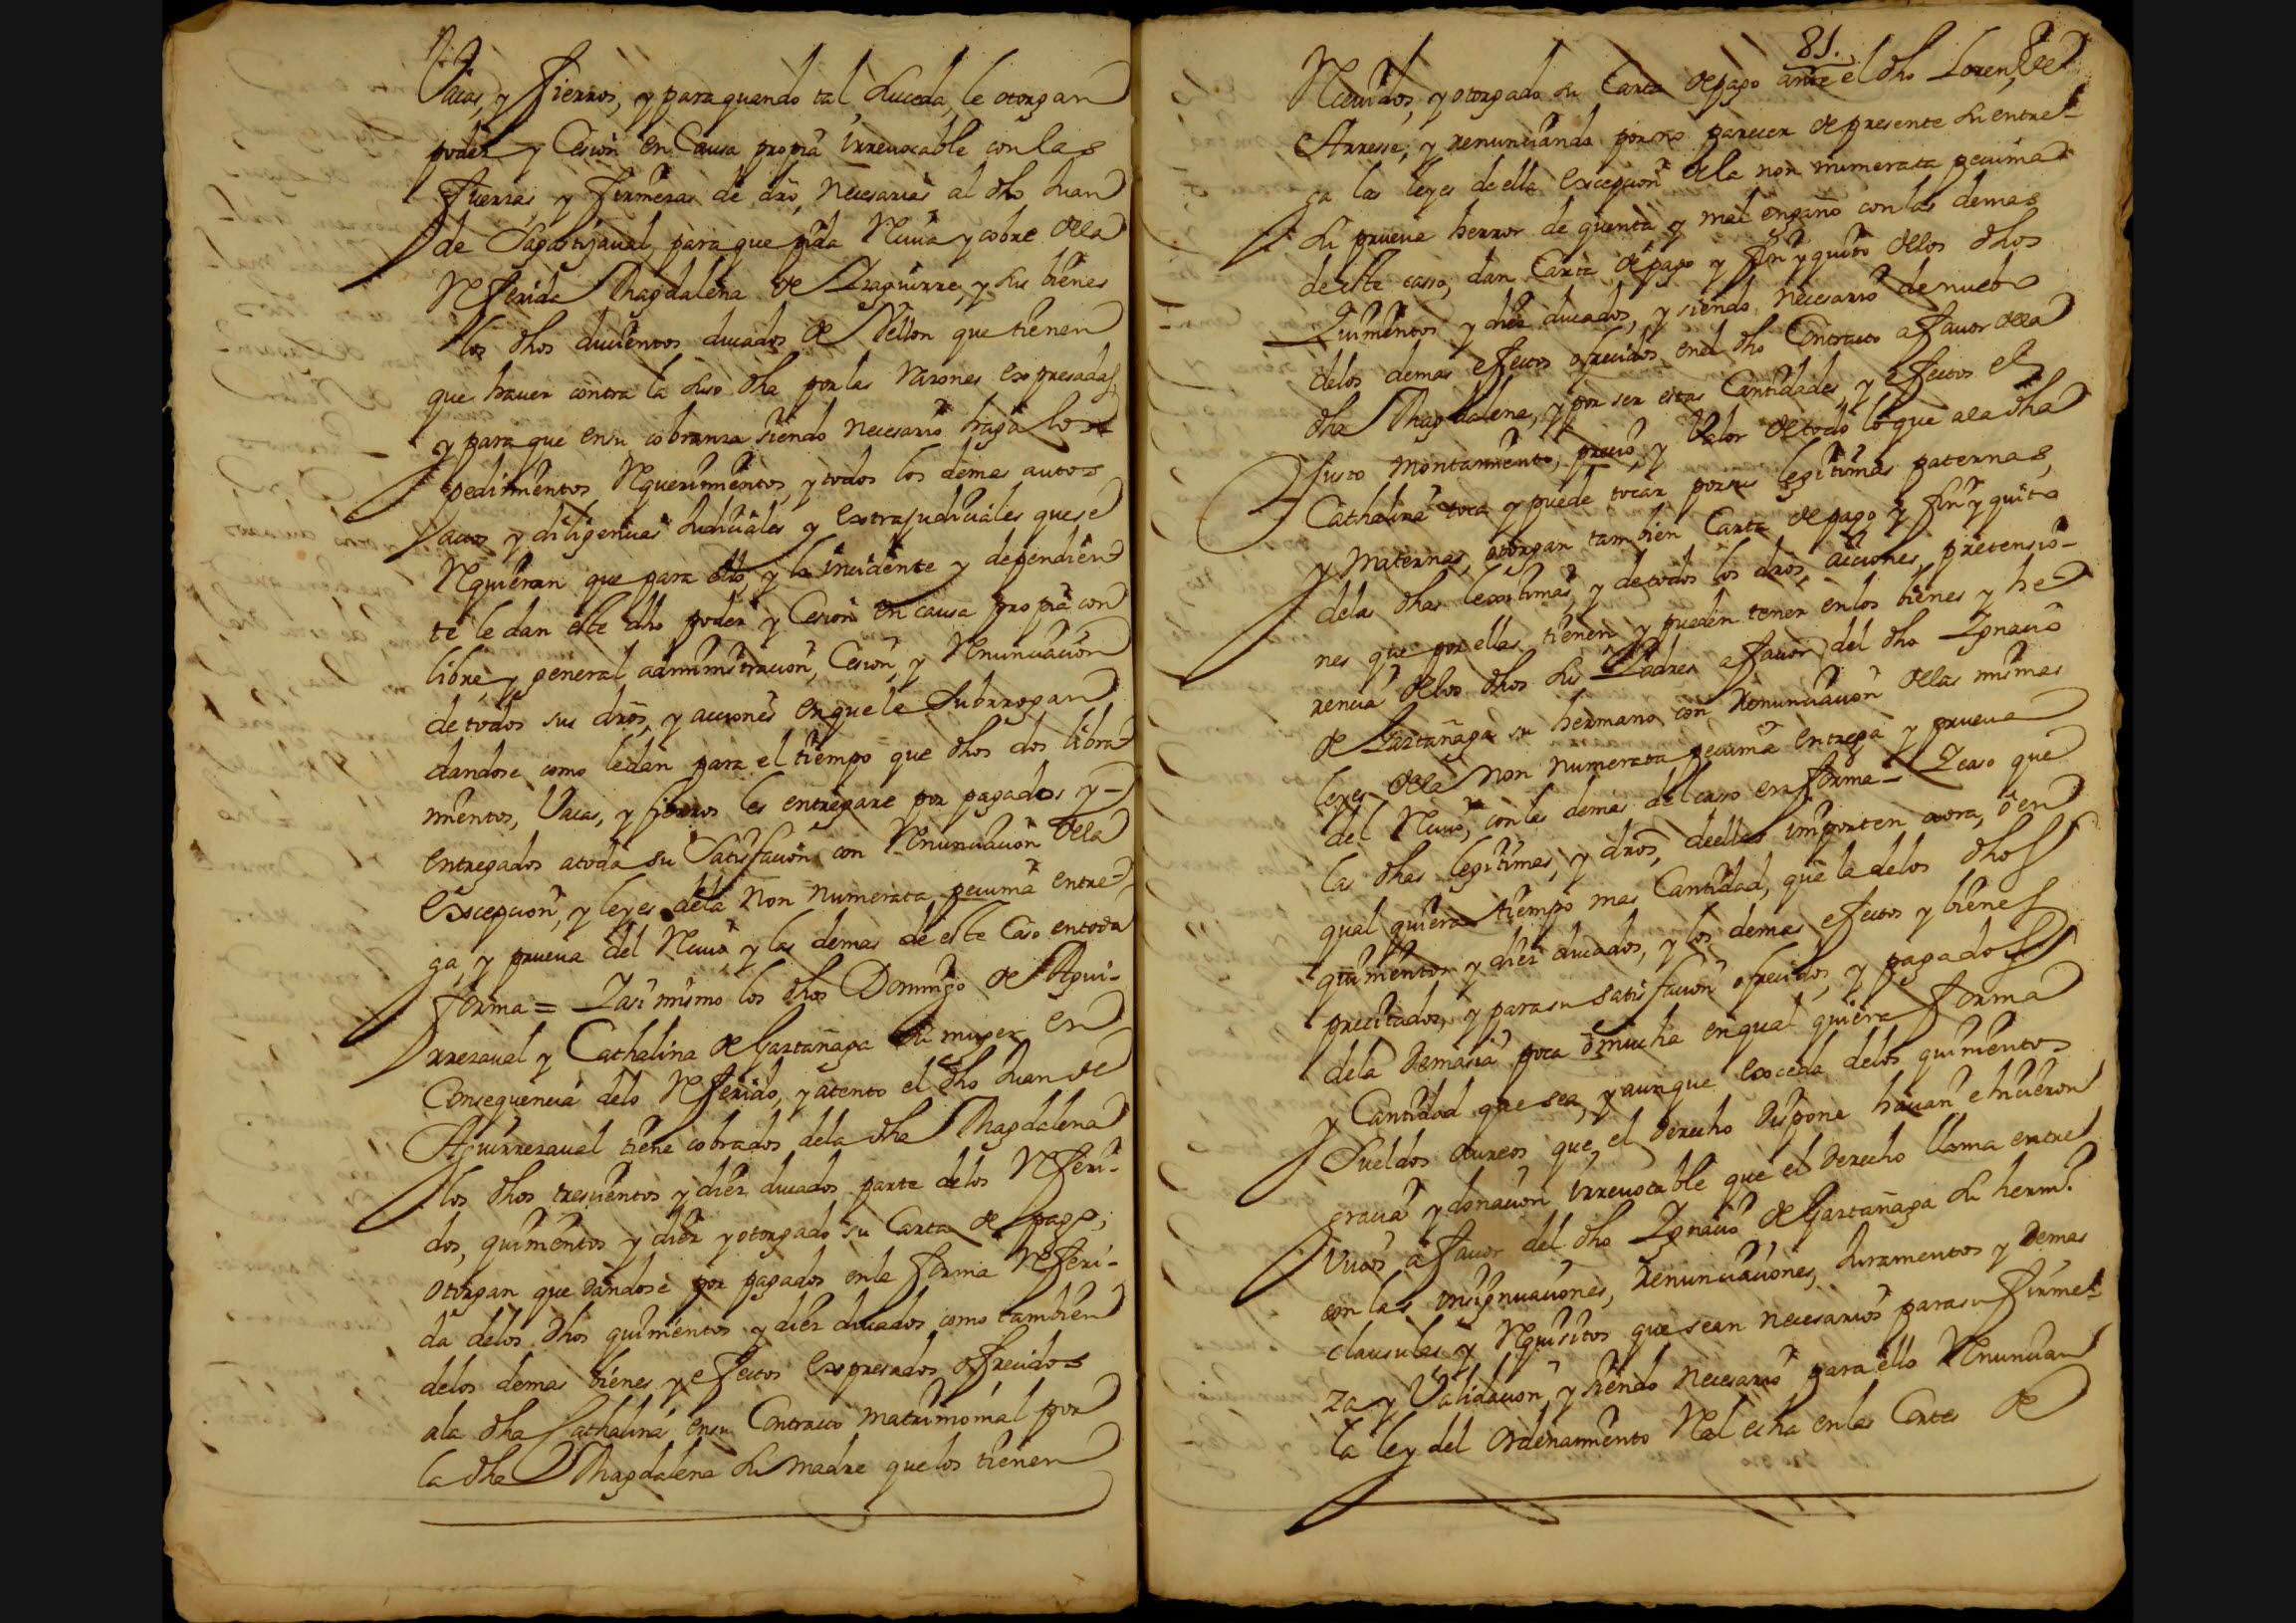 Vacas, y fierros, y para quando tal suceda, le otorgan
poder y Cesion en Causa propia irreuocable con las
fuerzas, y firmezas de dro, necesarias al dho Juan
de Sagastizaual, para que pida Reciua y cobre dela
Referida Magdalena de Yraguirre, y sus bienes
los dhos ducientos ducados de Vellon que tienen
que hauer contra la suso dha por las razones expresadas
y para que en su cobranza siendo necesario haga los
pedimentos, Requerimientos, y todos los demas autos
autos y diligencias Judiciales y extrajudiciales que se
Requieran que para ello, y lo incidente y dependien-
te le dan este dho poder y Cesion en causa propia con
libre, y general administracion, Cesion, y Renunciacion
de todos sus dros, y acciones en que le Subrrogan
dandose como sedan para el tiempo que dhos dos libra-
mientos, Vacas, y fierros les entregare por pagados y
entregados atoda su Satisfacion con Renunciacion dela
Excepcion, y leyes dela Non numerata pecunia entre-
ga, y prueua del Reciuo y las demas de este Caso entoda
forma = Y asi mismo los dhos Domingo de Agui-
rrezaual y Cathalina de Gastañaga su muger en
Consequencia delo Referido, y atento el dho Juan de
Aguirrezaual tiene cobrados dela dha Magdalena
los dhos trescientos y diez ducados parte delos Referi-
dos, quinientos y diez y otorgado su Carta de pago,
otorgan que dandose por pagados enla forma Referi-
da delos dhos quinientos y diez ducados como tambien
delos demas bienes, y efectos expresados ofrecidos
ala dha Cathalina en su Contrato matrimonial por
la dha Magdalena su madre que los tienen
81.
Reciuidos, y otorgado su Carta de pago ante el dho Lorenz de
Arresse, y renunciando por no parecer de presente su entre-
ga las leyes de ella excepcion dela non numerata pecunia
su prueua herror de quenta y mal engaño con las demas
de este casso, dan Carta de pago y fin y quito delos dhos
Quinientos y diez ducados, y siendo necesario de nuebo
delos demas efectos ofrecidos en el dho Contrato a fauor dela
dha Magdalena, y por ser estas Cantidades, y efectos el
Justo Montamiento, precio, y Valor de todo lo que ala dha
Cathalina toca y puede tocar por sus legitimas paternas,
y Maternas, otorgan tambien Carta de pago y fin y quito
delas dhas lexitimas, y de todos los dros, acciones, pretensio-
nes que por ellas tienen y pueden tener en los bienes y he-
rencia delos dhos sus Padres a fauor del dho Ygnacio
de Gastañaga su hermano con Renunciacion delas mismas
leyes dela Non numerata pecunia entrega y prueua
del Reciuo, con las demas del caso en forma = Y caso que
las dhas legitimas, y dros, de ellas importen aora, o en
qual quiera tiempo mas Cantidad, que la delos dhos
quinientos y diez ducados, y los demas efectos y bienes
precitados, y para su satisfacion ofrecidos, y pagados
dela Demasia poca o mucha en qual quiera forma
y Cantidad que sea, y aunque exceda delos quinientos
Sueldos Aureos que el derecho dispone hacian e hicieron
gracia y donacion irreuocable que el derecho llama entre
Viuos a fauor del dho Ygnacio de Gastañaga su herm.o
con las insignuaciones, Renunciaciones, Juramentos y demas
clausulas y Requisitos que sean necesarios para su firme-
za y Validacion, y siendo necesario para ello Renuncian
la ley del Ordenamiento Real echa en las Cortes de